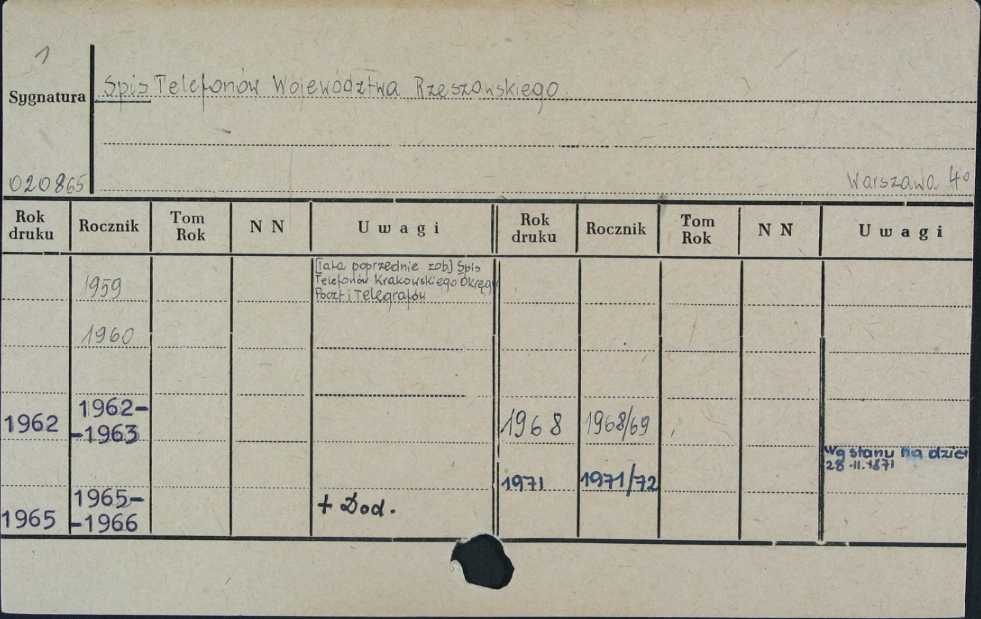 1
Sygnatura
Spis Telefonów Województwa Rzeszowskiego
020865
Warszawa 4º
Rok druku Rocznik Tom Rok N N Uwagi Rok druku Rocznik Tom Rok N N Uwagi
1959 [lata poprzednie zob] Spis
Telefonów Krakowskiego Okręgu
Poczt i Telegrafów
1960
1962 1962-
-1963
1968 1968/69
1971 1971/72 Wg stanu na dzień
28.II.1971
1965 1965-
-1966 + Dod.